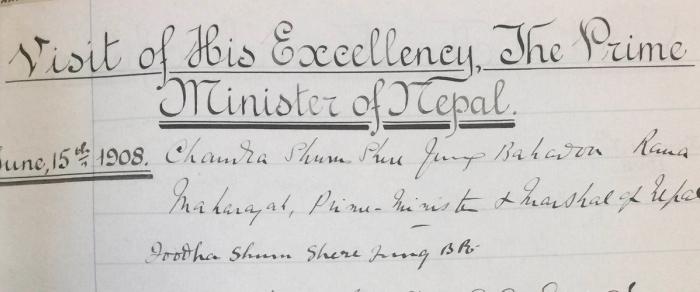 Visit of His Excellency, The Prime
Minister of Nepal.
June, 15th 1908. Chandra Shum Shere Jung Bahadoor Rana
Maharajah, Prime-Minister & Marshal of Nepal
Joodha Shum Shere Jung BR